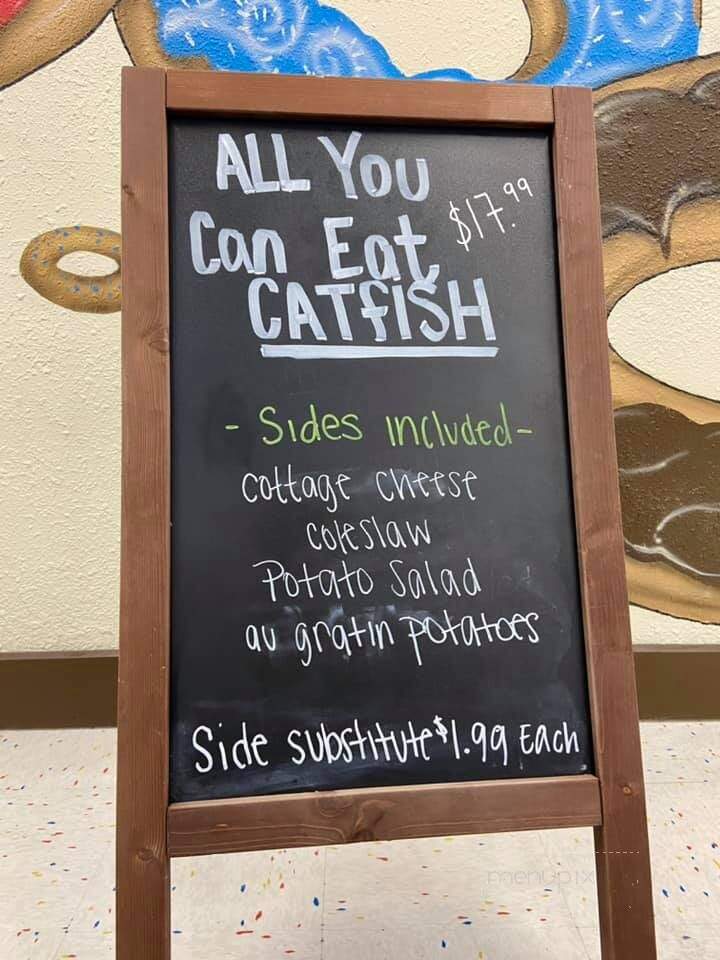 ALL You
Can Eat $17.99
CATfISH
- Sides included -
cottage cheese
coleslaw
Potato Salad
au gratin potatoes
Side substitute $1.99 Each
menupix